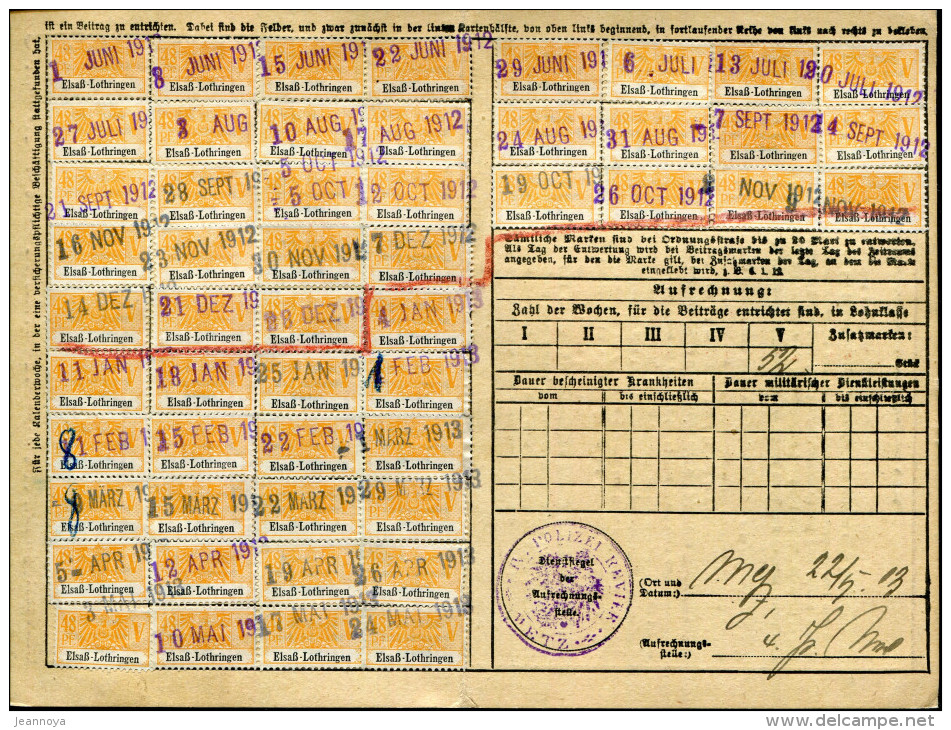 ist ein Beitrag zu entrichten. Dabei sind die Felder, und zwar zunächst in der linken Kartenhälfte, von oben links beginnend, in fortlaufender Reihe von links nach rechts zu bekleben.
Für jede Kalenderwoche, in der eine versicherungspflichtige Beschäftigung stattgefunden hat,
1 JUNI 191 8 JUNI 191 15 JUNI 191 22 JUNI 1912 29 JUNI 191 6. JULI 13 JULI 19 20 JULI 1912
Elsaß-Lothringen Elsaß-Lothringen Elsaß-Lothringen Elsaß-Lothringen Elsaß-Lothringen Elsaß-Lothringen Elsaß-Lothringen Elsaß-Lothringen
27 JULI 19 3 AUG 10 AUG 191 17 AUG 1912 24 AUG 19 31 AUG 19 7 SEPT 1912 14 SEPT 1912
Elsaß-Lothringen Elsaß-Lothringen Elsaß-Lothringen Elsaß-Lothringen Elsaß-Lothringen Elsaß-Lothringen Elsaß-Lothringen Elsaß-Lothringen
5 OCT 1912
21 SEPT 1912 28 SEPT 191 5 OCT 1 12 OCT 1912 19 OCT 191 26 OCT 1912 2 NOV 1912 9 NOV 1912
Elsaß-Lothringen Elsaß-Lothringen Elsaß-Lothringen Elsaß-Lothringen Elsaß-Lothringen Elsaß-Lothringen Elsaß-Lothringen Elsaß-Lothringen
16 NOV 1912 23 NOV 1912 30 NOV 191 7 DEZ 1912
Elsaß-Lothringen Elsaß-Lothringen Elsaß-Lothringen Elsaß-Lothringen
14 DEZ 191 21 DEZ 19 28 DEZ 191 4 JAN 1913
Elsaß-Lothringen Elsaß-Lothringen Elsaß-Lothringen Elsaß-Lothringen
11 JAN 191 18 JAN 191 25 JAN 19 1 FEB 1913
Elsaß-Lothringen Elsaß-Lothringen Elsaß-Lothringen Elsaß-Lothringen
8 FEB 1 15 FEB 19 22 FEB -1 MÄRZ 1913
Elsaß-Lothringen Elsaß-Lothringen Elsaß-Lothringen Elsaß-Lothringen
8 MÄRZ 19 15 MÄRZ 19 22 MÄRZ 19 29 MÄRZ 1913
Elsaß-Lothringen Elsaß-Lothringen Elsaß-Lothringen Elsaß-Lothringen
5- APR 19 12 APR 191 19 APR 19 26 APR 1913
Elsaß-Lothringen Elsaß-Lothringen Elsaß-Lothringen Elsaß-Lothringen
3 MAI 1913 10 MAI 19 17 MAI 191 24 MAI 1913
Elsaß-Lothringen Elsaß-Lothringen Elsaß-Lothringen Elsaß-Lothringen
Sämtliche Marken sind bei Ordnungsstrafe bis zu 20 Mark zu entwerten.
Als Tag der Entwertung wird bei Beitragsmarken der letzte Tag des Zeitraums
angegeben, für den die Marke gilt, bei Zusatzmarken der Tag, an dem die Marke
eingeklebt wird, z. B. 6. 1. 12.
Aufrechnung:
Zahl der Wochen, für die Beiträge entrichtet sind, in Lohnklasse
I II III IV V Zusatzmarken:
Stück
Dauer bescheinigter Krankheiten Dauer militärischer Dienstleistungen
vom bis einschließlich vom bis einschließlich
POLIZEI REVIER
METZ
Dienstsiegel
der
Aufrechnungs-
stelle.
(Ort und
Datum:) Metz 22/5 13
(Aufrechnungs-
stelle:)
jeannoya
www.delcampe.net